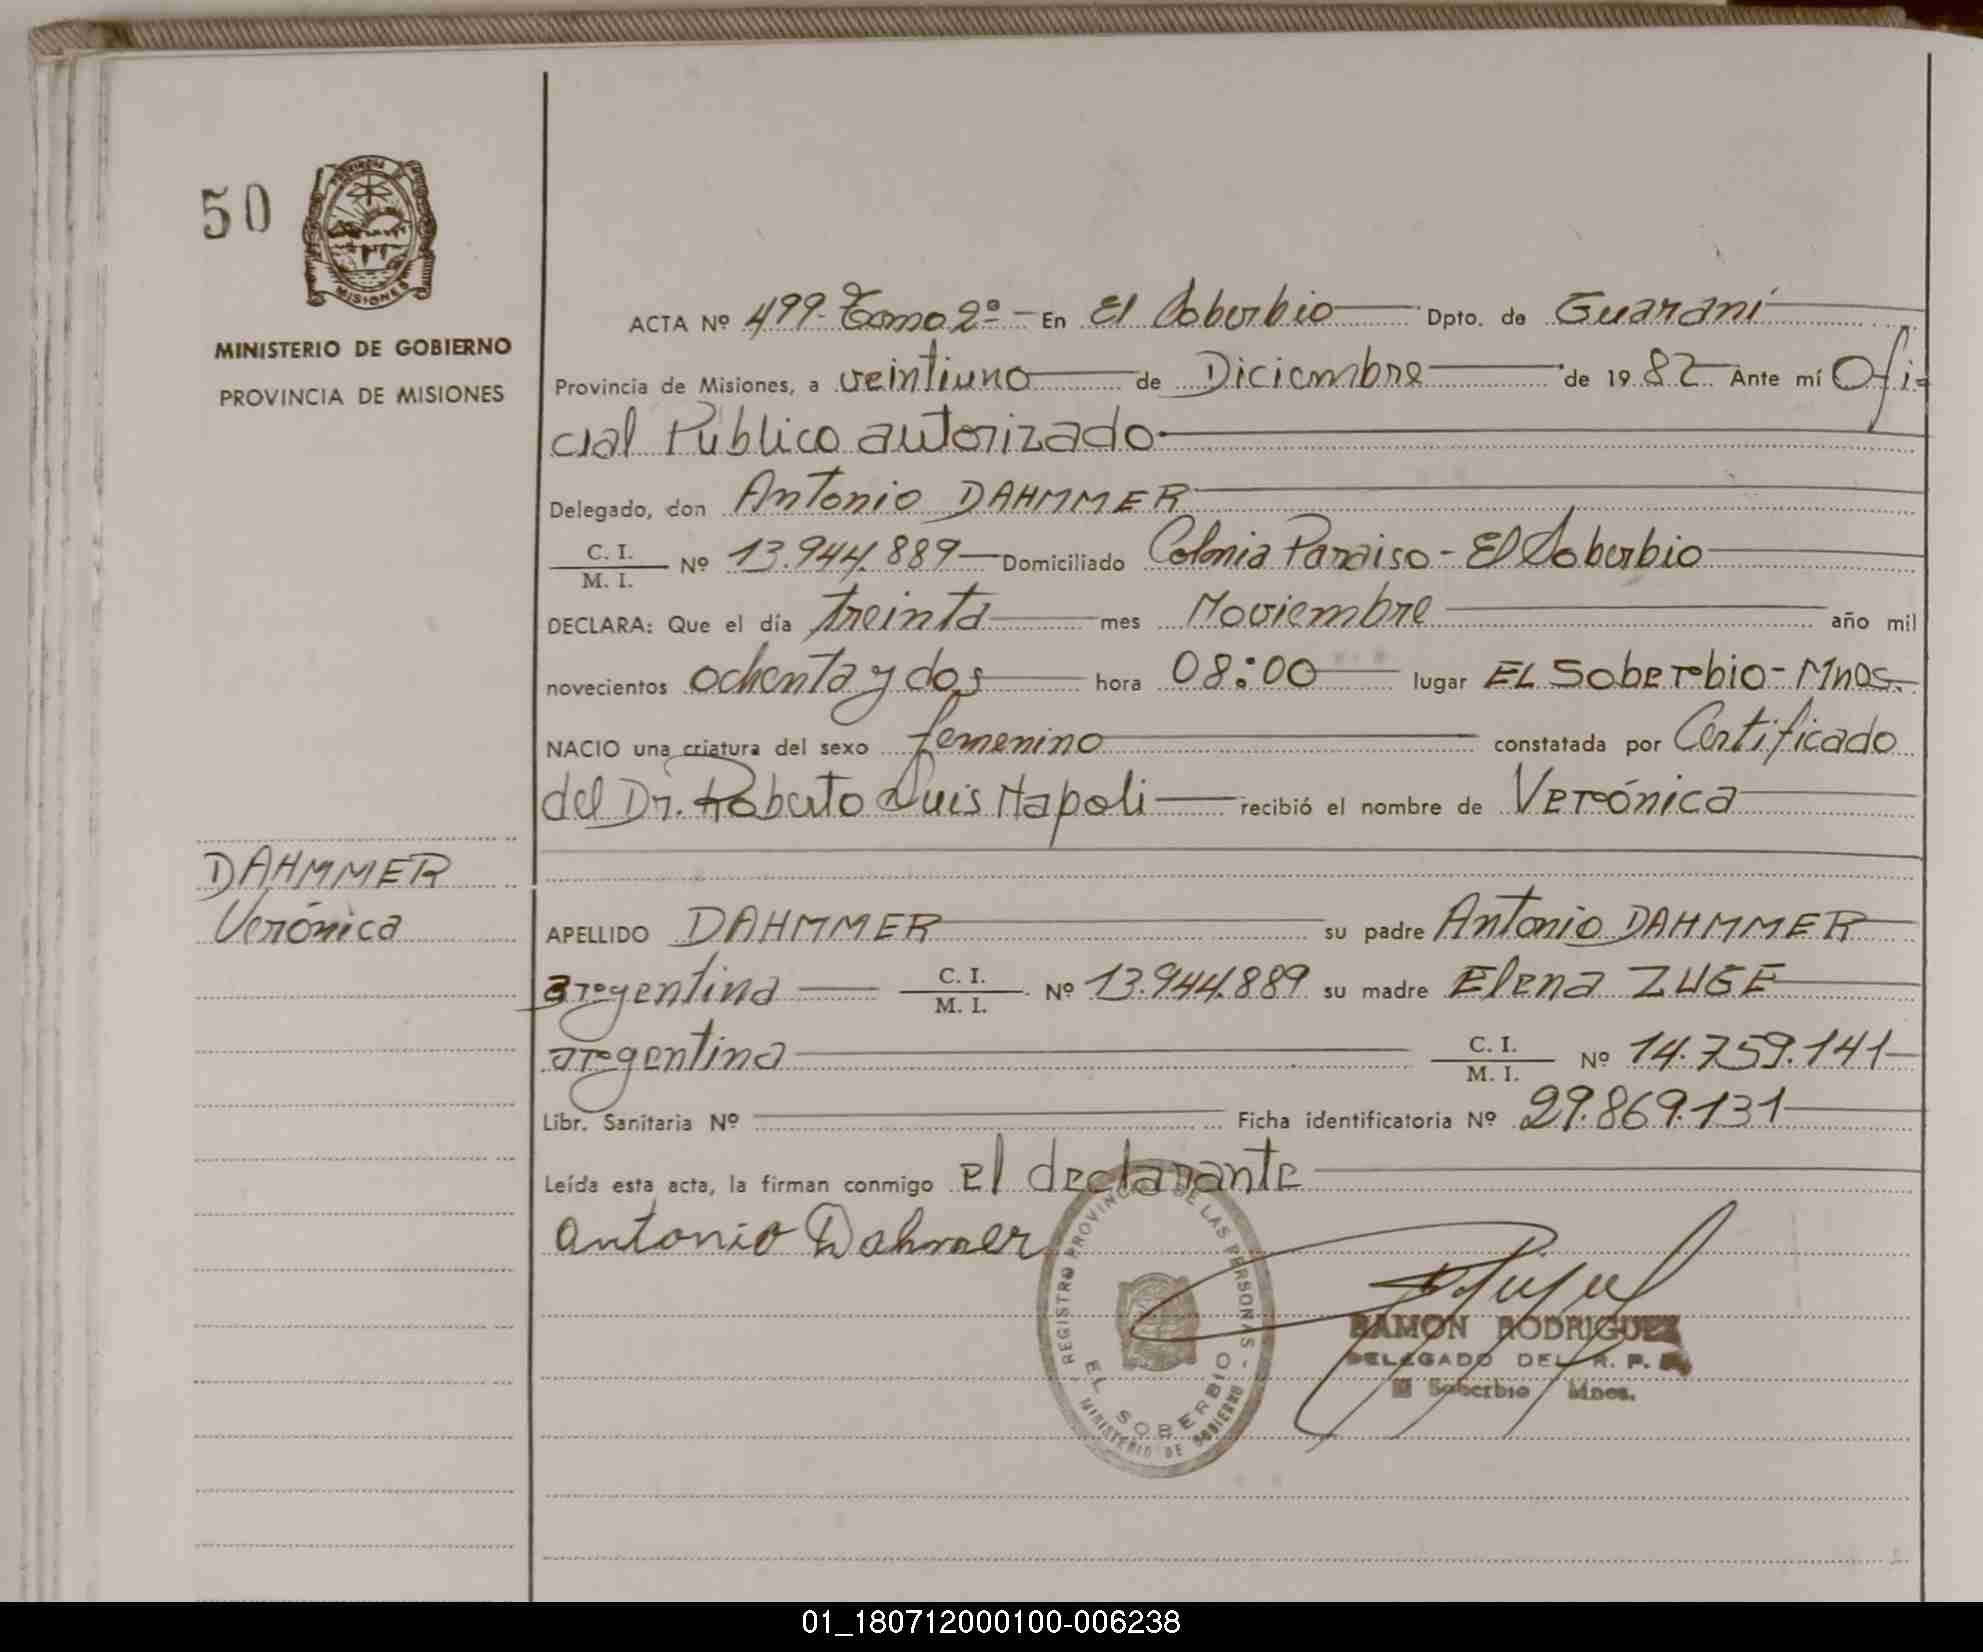 50
PROVINCIA DE
MISIONES
MINISTERIO DE GOBIERNO
PROVINCIA DE MISIONES
ACTA Nº 499- Tomo 2º- En El Soberbio Dpto. de Guaraní
Provincia de Misiones, a veintiuno de Diciembre de 1982 Ante mí Ofi-
cial Público autorizado
Delegado, don Antonio DAHMMER
C. I. / M. I. Nº 13.944.889 Domiciliado Colonia Paraiso - El Soberbio
DECLARA: Que el día treinta mes Noviembre año mil
novecientos ochenta y dos hora 08:00 lugar EL Soberbio - Mnes.
NACIO una criatura del sexo femenino constatada por Certificado
del Dr. Roberto Luis Napoli recibió el nombre de Verónica
DAHMMER
Verónica
APELLIDO DAHMMER su padre Antonio DAHMMER
argentina C. I. / M. I. Nº 13.944.889 su madre Elena ZUGE
argentina C. I. / M. I. Nº 14.759.141
Libr. Sanitaria Nº Ficha identificatoria Nº 29.869.131
Leída esta acta, la firman conmigo el declarante
Antonio Dahmer
REGISTRO PROVINCIAL DE LAS PERSONAS -
EL SOBERBIO
MINISTERIO DE GOBIERNO
RAMON RODRIGUEZ
DELEGADO DEL R. P.
El Soberbio Mnes.
01_180712000100-006238